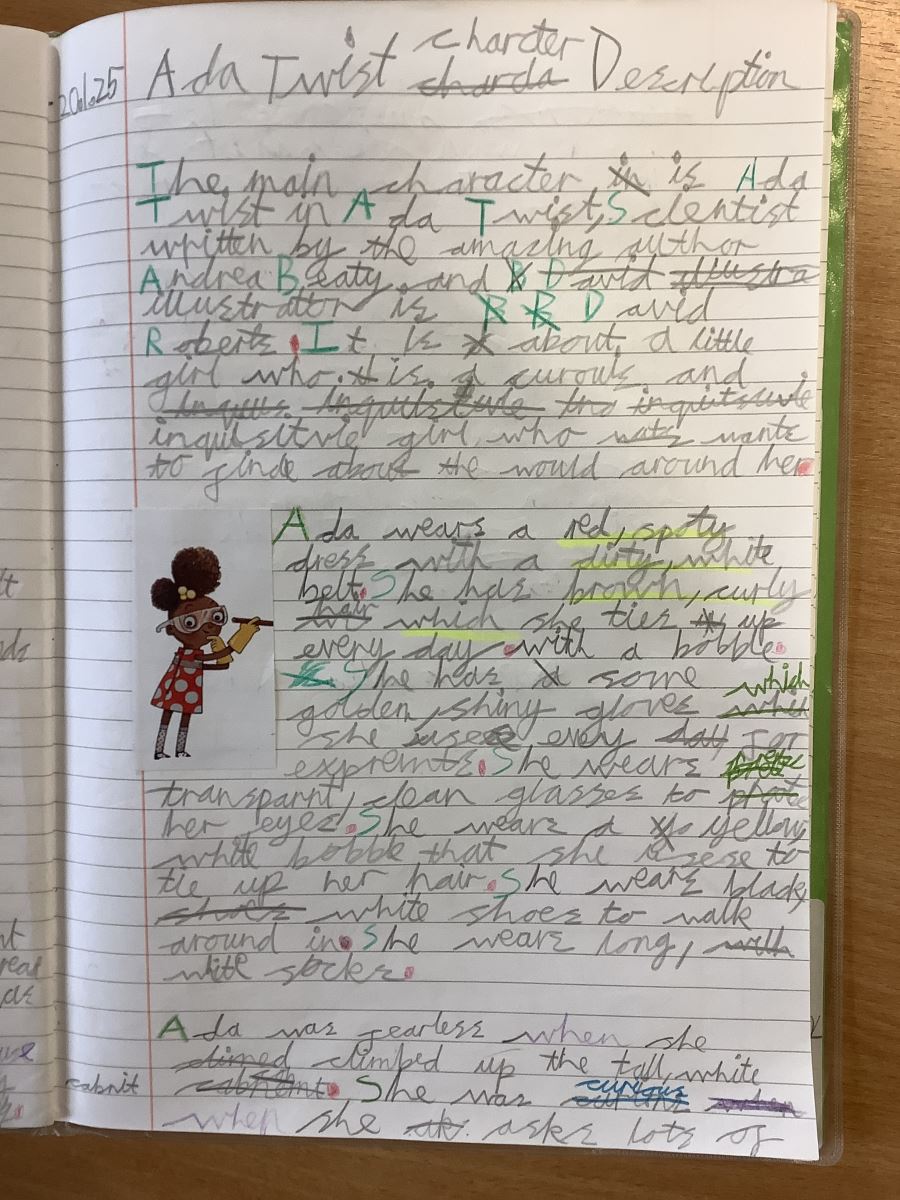 20.1.25
charcter
Ada Twist charda Description
The main character in is Ada
Twist in Ada Twist, Scientist
written by the amazing author
Andrea Beaty and B David illustra
illustrator is B B David
Roberts. It is about a little
girl who is a curouis and
inquisitvie girl who wants
to finde about the would around her.
Ada wears a red, spoty
dress with a dirty, white
belt. She has brown, curly
hair which she ties up
every day with a bobble.
She has some which
golden, shiny gloves
she uses every day for
expremts. She wears
transparnt, clean glasses to
her eyes. She wears a yellow,
white bobble that she usese to
tie up her hair. She wears black,
shoes white shoes to walk
around in. She wears long, with
white socks.
Ada was fearless when she
climed climbed up the tall, white
cabnit
She was curious when
when she asks lots of